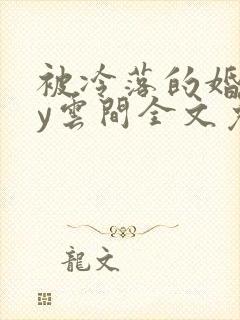 被冷落的婚
y雲間全文免
龍文